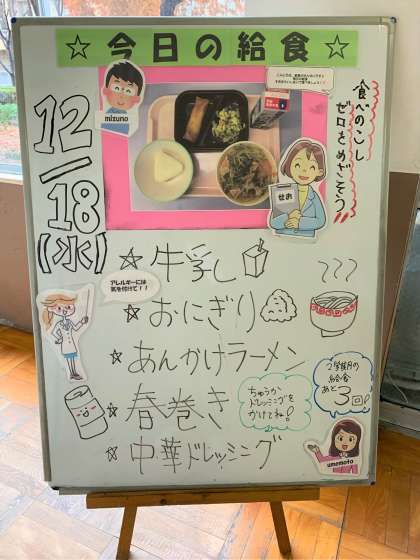 ☆今日の給食☆
mizuno
せお
食べのこし
ゼロをめざそう!!
12/18(水)
☆牛乳
アレルギーには
気を付けて!!
☆おにぎり
☆あんかけラーメン
☆春巻き
ちゅうか
ドレッシングを
かけてね!
2学期の
給食
あと
3回!
☆中華ドレッシング
umemoto